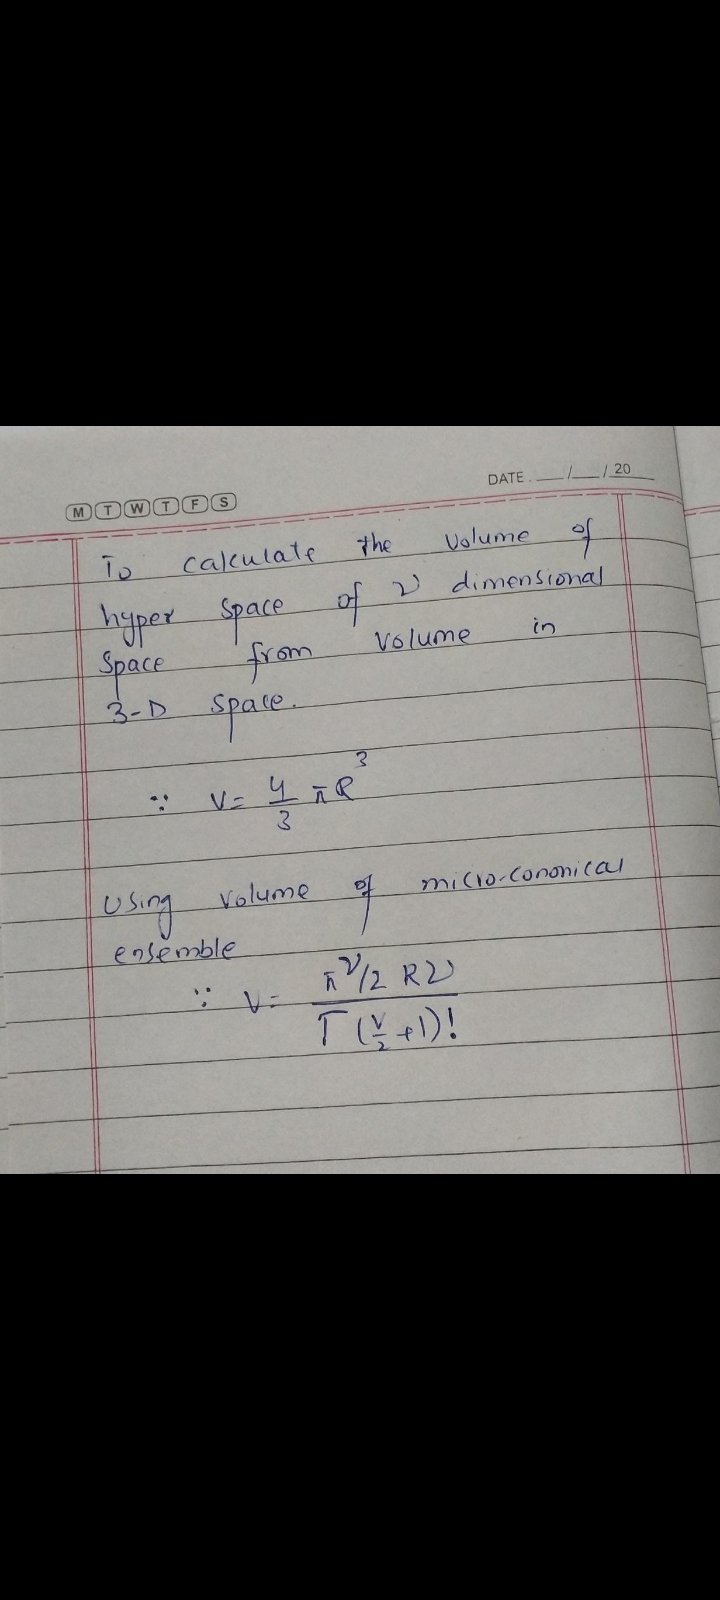 M T W T F S
DATE. __/__/20__
To calculate the volume of
hyper space of ν dimensional
space from volume in
3-D space.
∵ V= 4/3 π R³
Using volume of micro-cononical
ensemble
∵ V= π^ν/2 Rν / Γ(v/2 +1)!